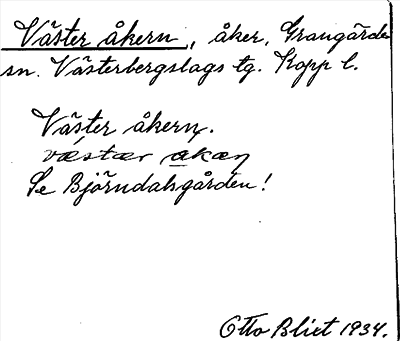 Väster åkern, åker, Grangärde
sn. Västerbergslags tg. Kopp l.
Väster åkern.
væstær akaṇ
Se Björndalsgården!
Otto Blixt 1934.